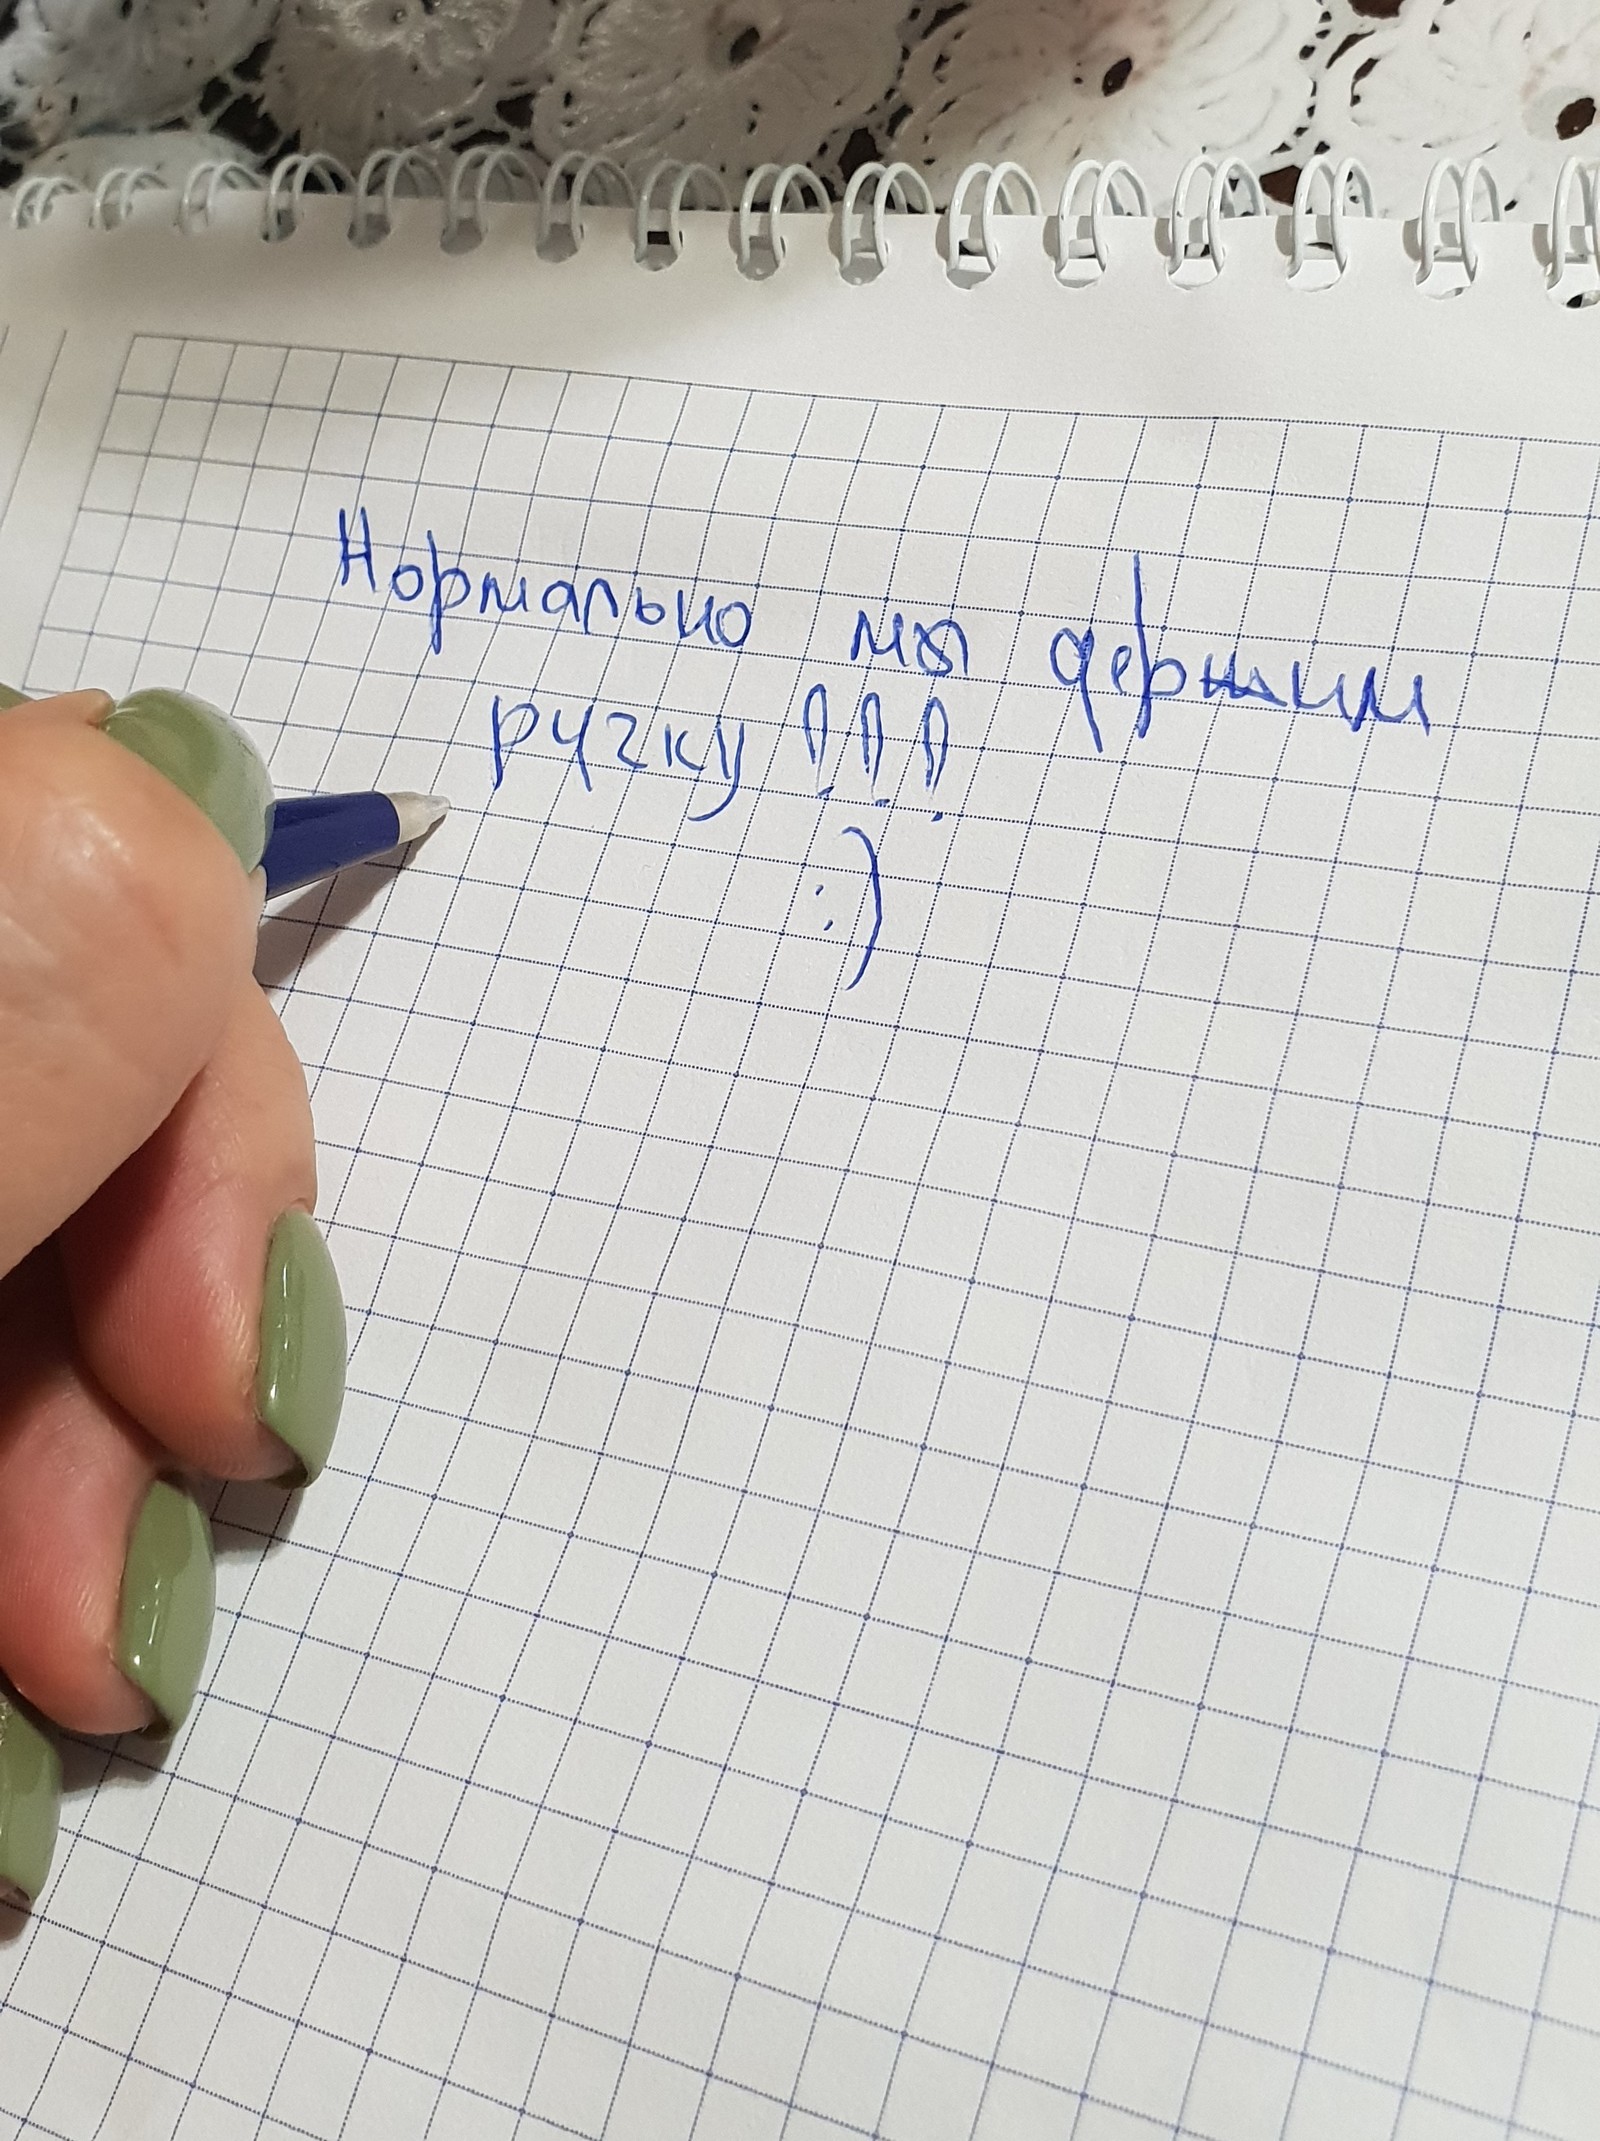 Нормально мы держим
ручку !!!
:)